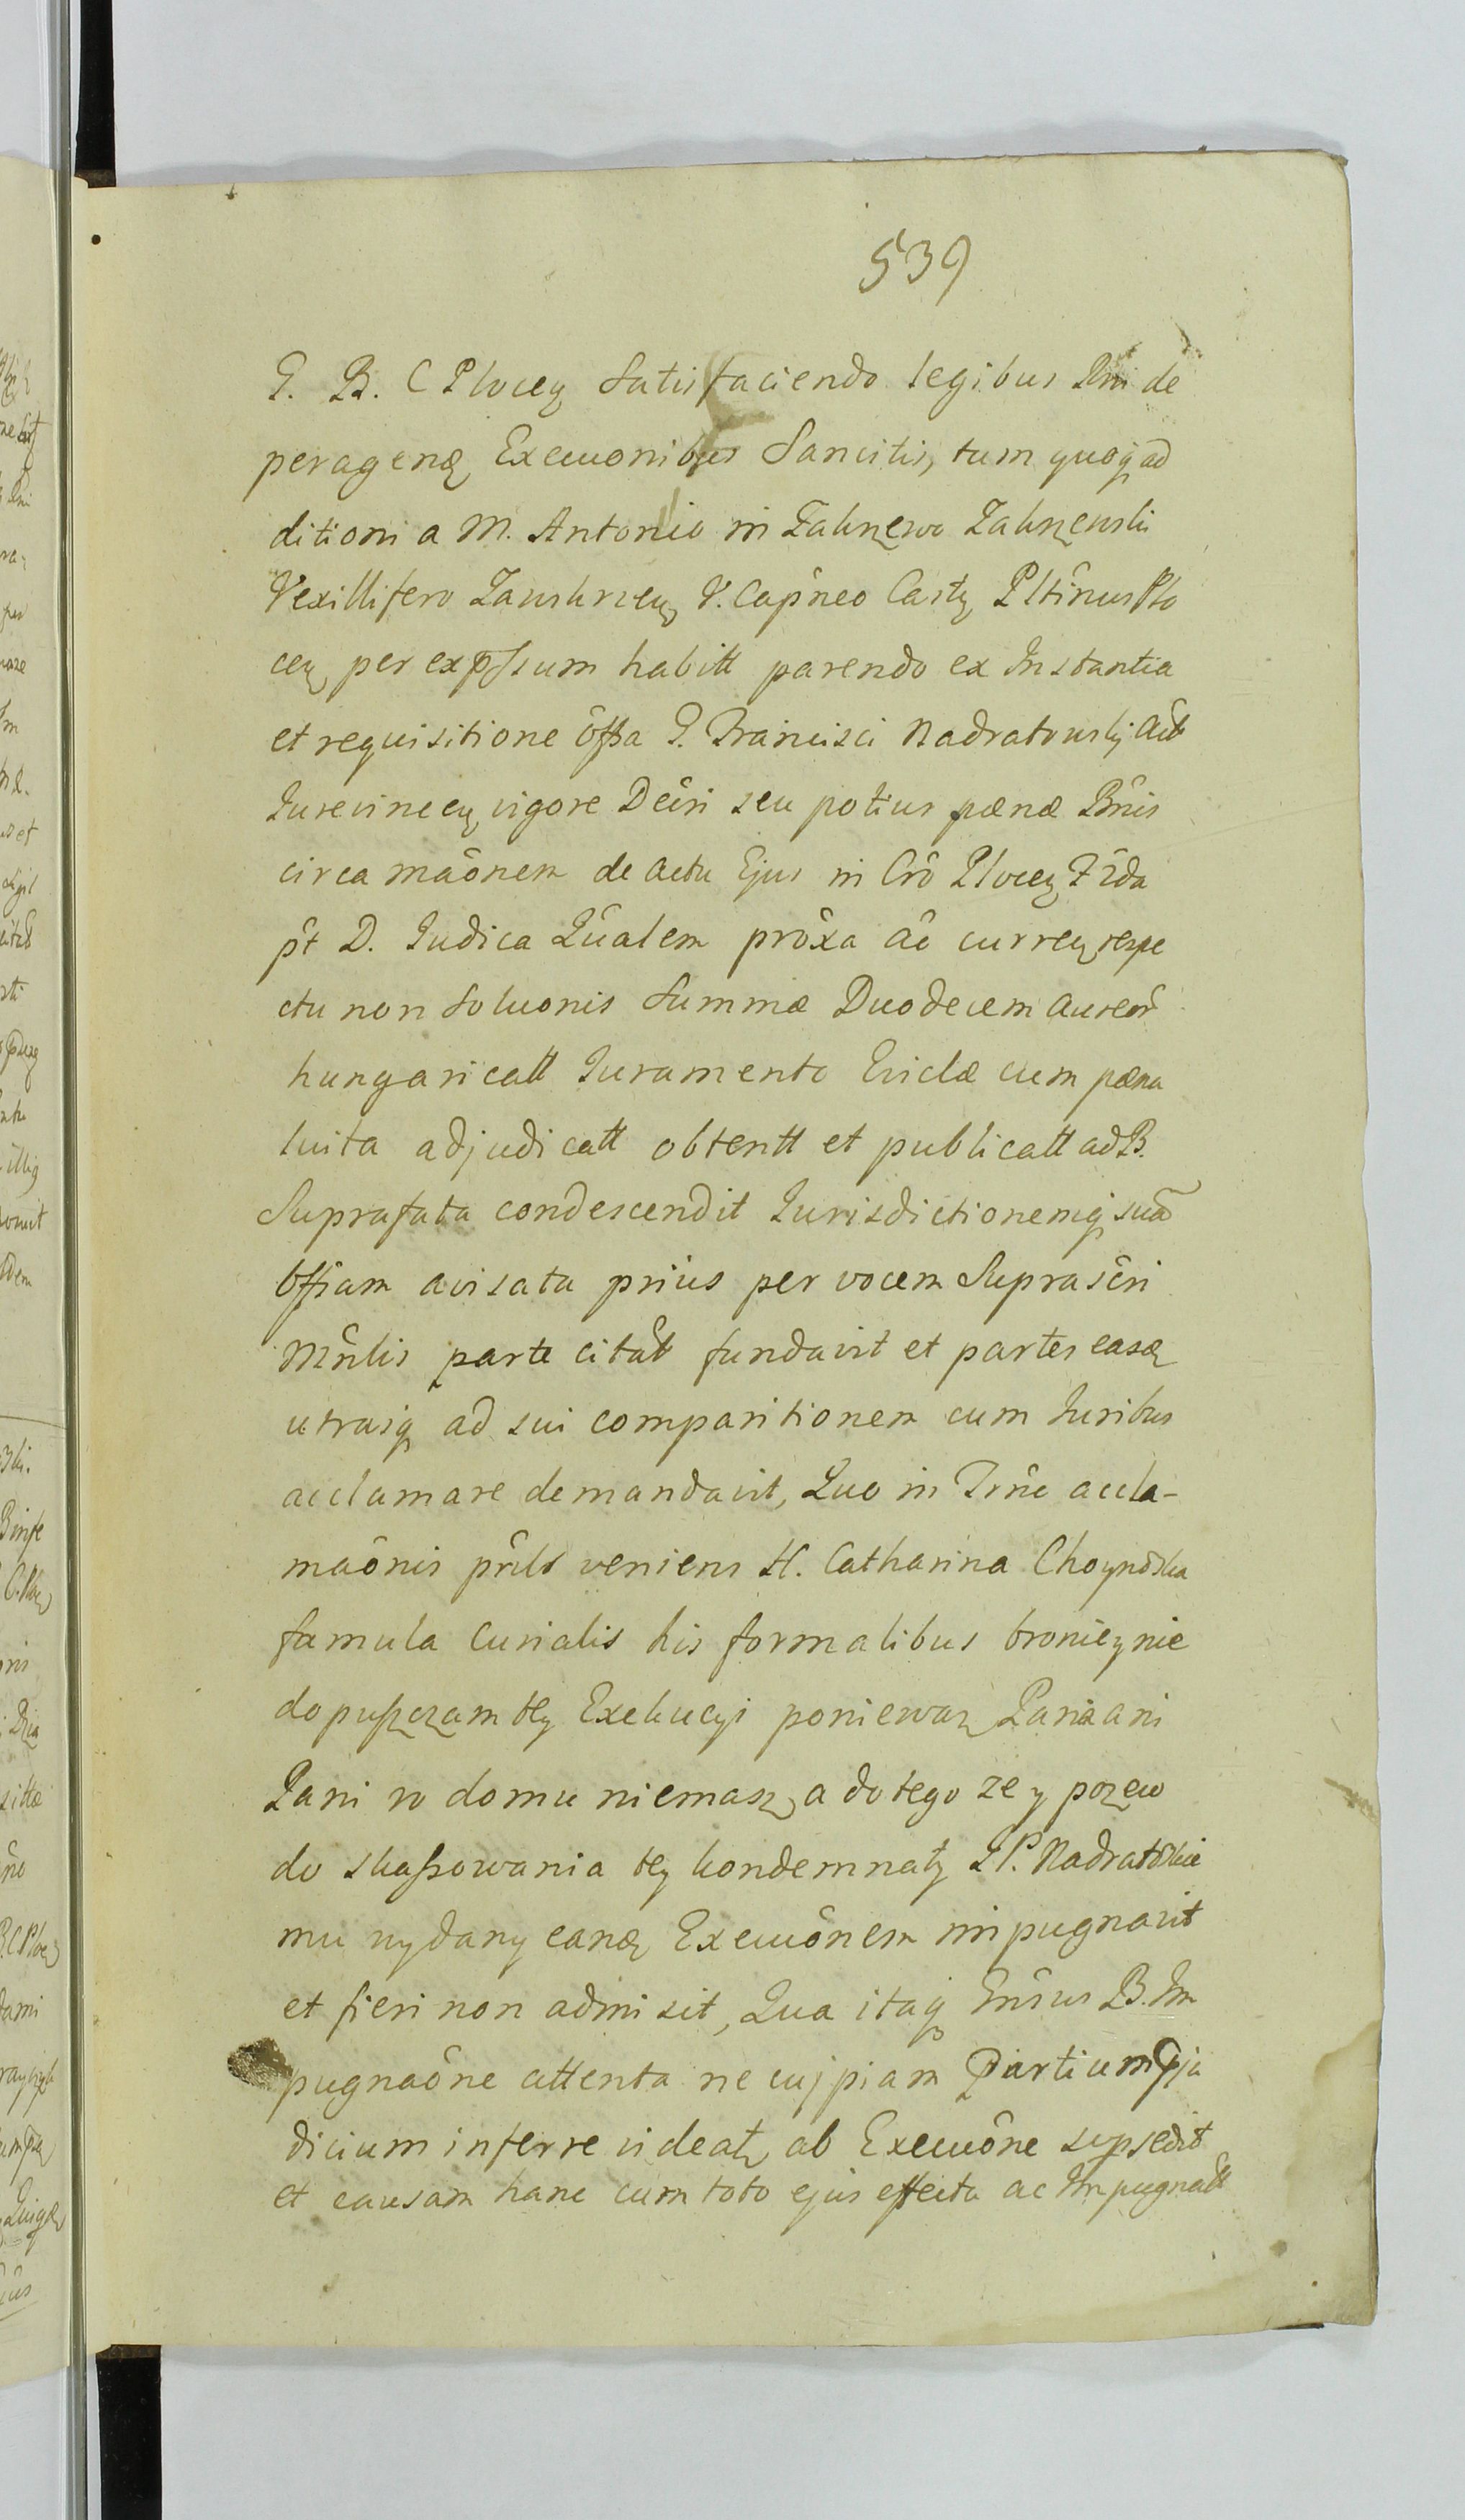 539
G. B. C Plocen Satisfaciendo legibus Rni de
peragenꝫ Execuonibus Sancitis, tum quoqꝫ ad
ditioni a M. Antonio in Zakrzewo Zakrzewski
Vexillifero Zawskrzen, V. Capneo Castꝫ Pltinus Plo
cen per expssum habitt parendo ex Instantia
et requisitione offsa G. Francisci Nadratowskj Act
Jurevincen, vigore Dcîsi seu potius pœnæ Bnis
circa maônem de actu Ejus in Crô Plocen
pt D. Judica Lûalem prôxa aê curren respe
ctu non Soluonis Summæ Duodecem aureor
hungaricatt Juramento Euictæ cum pœna
luita adjudicatt obtentt et publicatt ad B.
Suprafata condescendit Jurisdictionemqꝫ suã
Offsam avisata prius per vocem Suprascri
Mnlis parte citât fundavit et partes easdꝫ
utrasqꝫ ad sui comparitionem cum Juribus
acclamare demandavit, Quo in Trnô accla-
maônis prnls veniens H. Catharina Choynõska
famula Curialis his formalibus bronię y nie
dopuszczam tey Exekucyi poniewaz Pana ani
Pani w domu niemasz, a do tego ze y pozew
do skassowania tey kondemnaty JP. Nadratõskie
mu wydany eandꝫ Execuônem impugnavit
et fieri non admisit, Qua itaqꝫ Einsus B. Im
pugnaône attenta ne cujpiam Partium pju
dicium inferre videatꝫ ab Execuône supsedit
et causam hanc cum toto ejus effectu ac Impugnatt